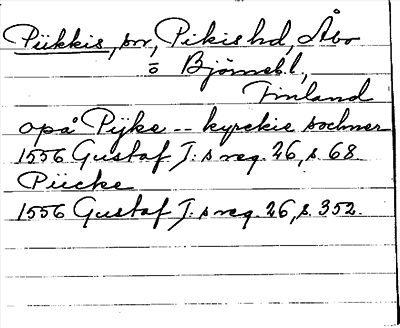 Piikkis, sn, Pikis hd, Åbo
o Björneb. l.,
Finland
opå Pijke -- kyrckie sochner
1556 Gustaf I:s reg. 26, s. 68.
Pücke
1556 Gustaf I:s reg. 26, s. 352.